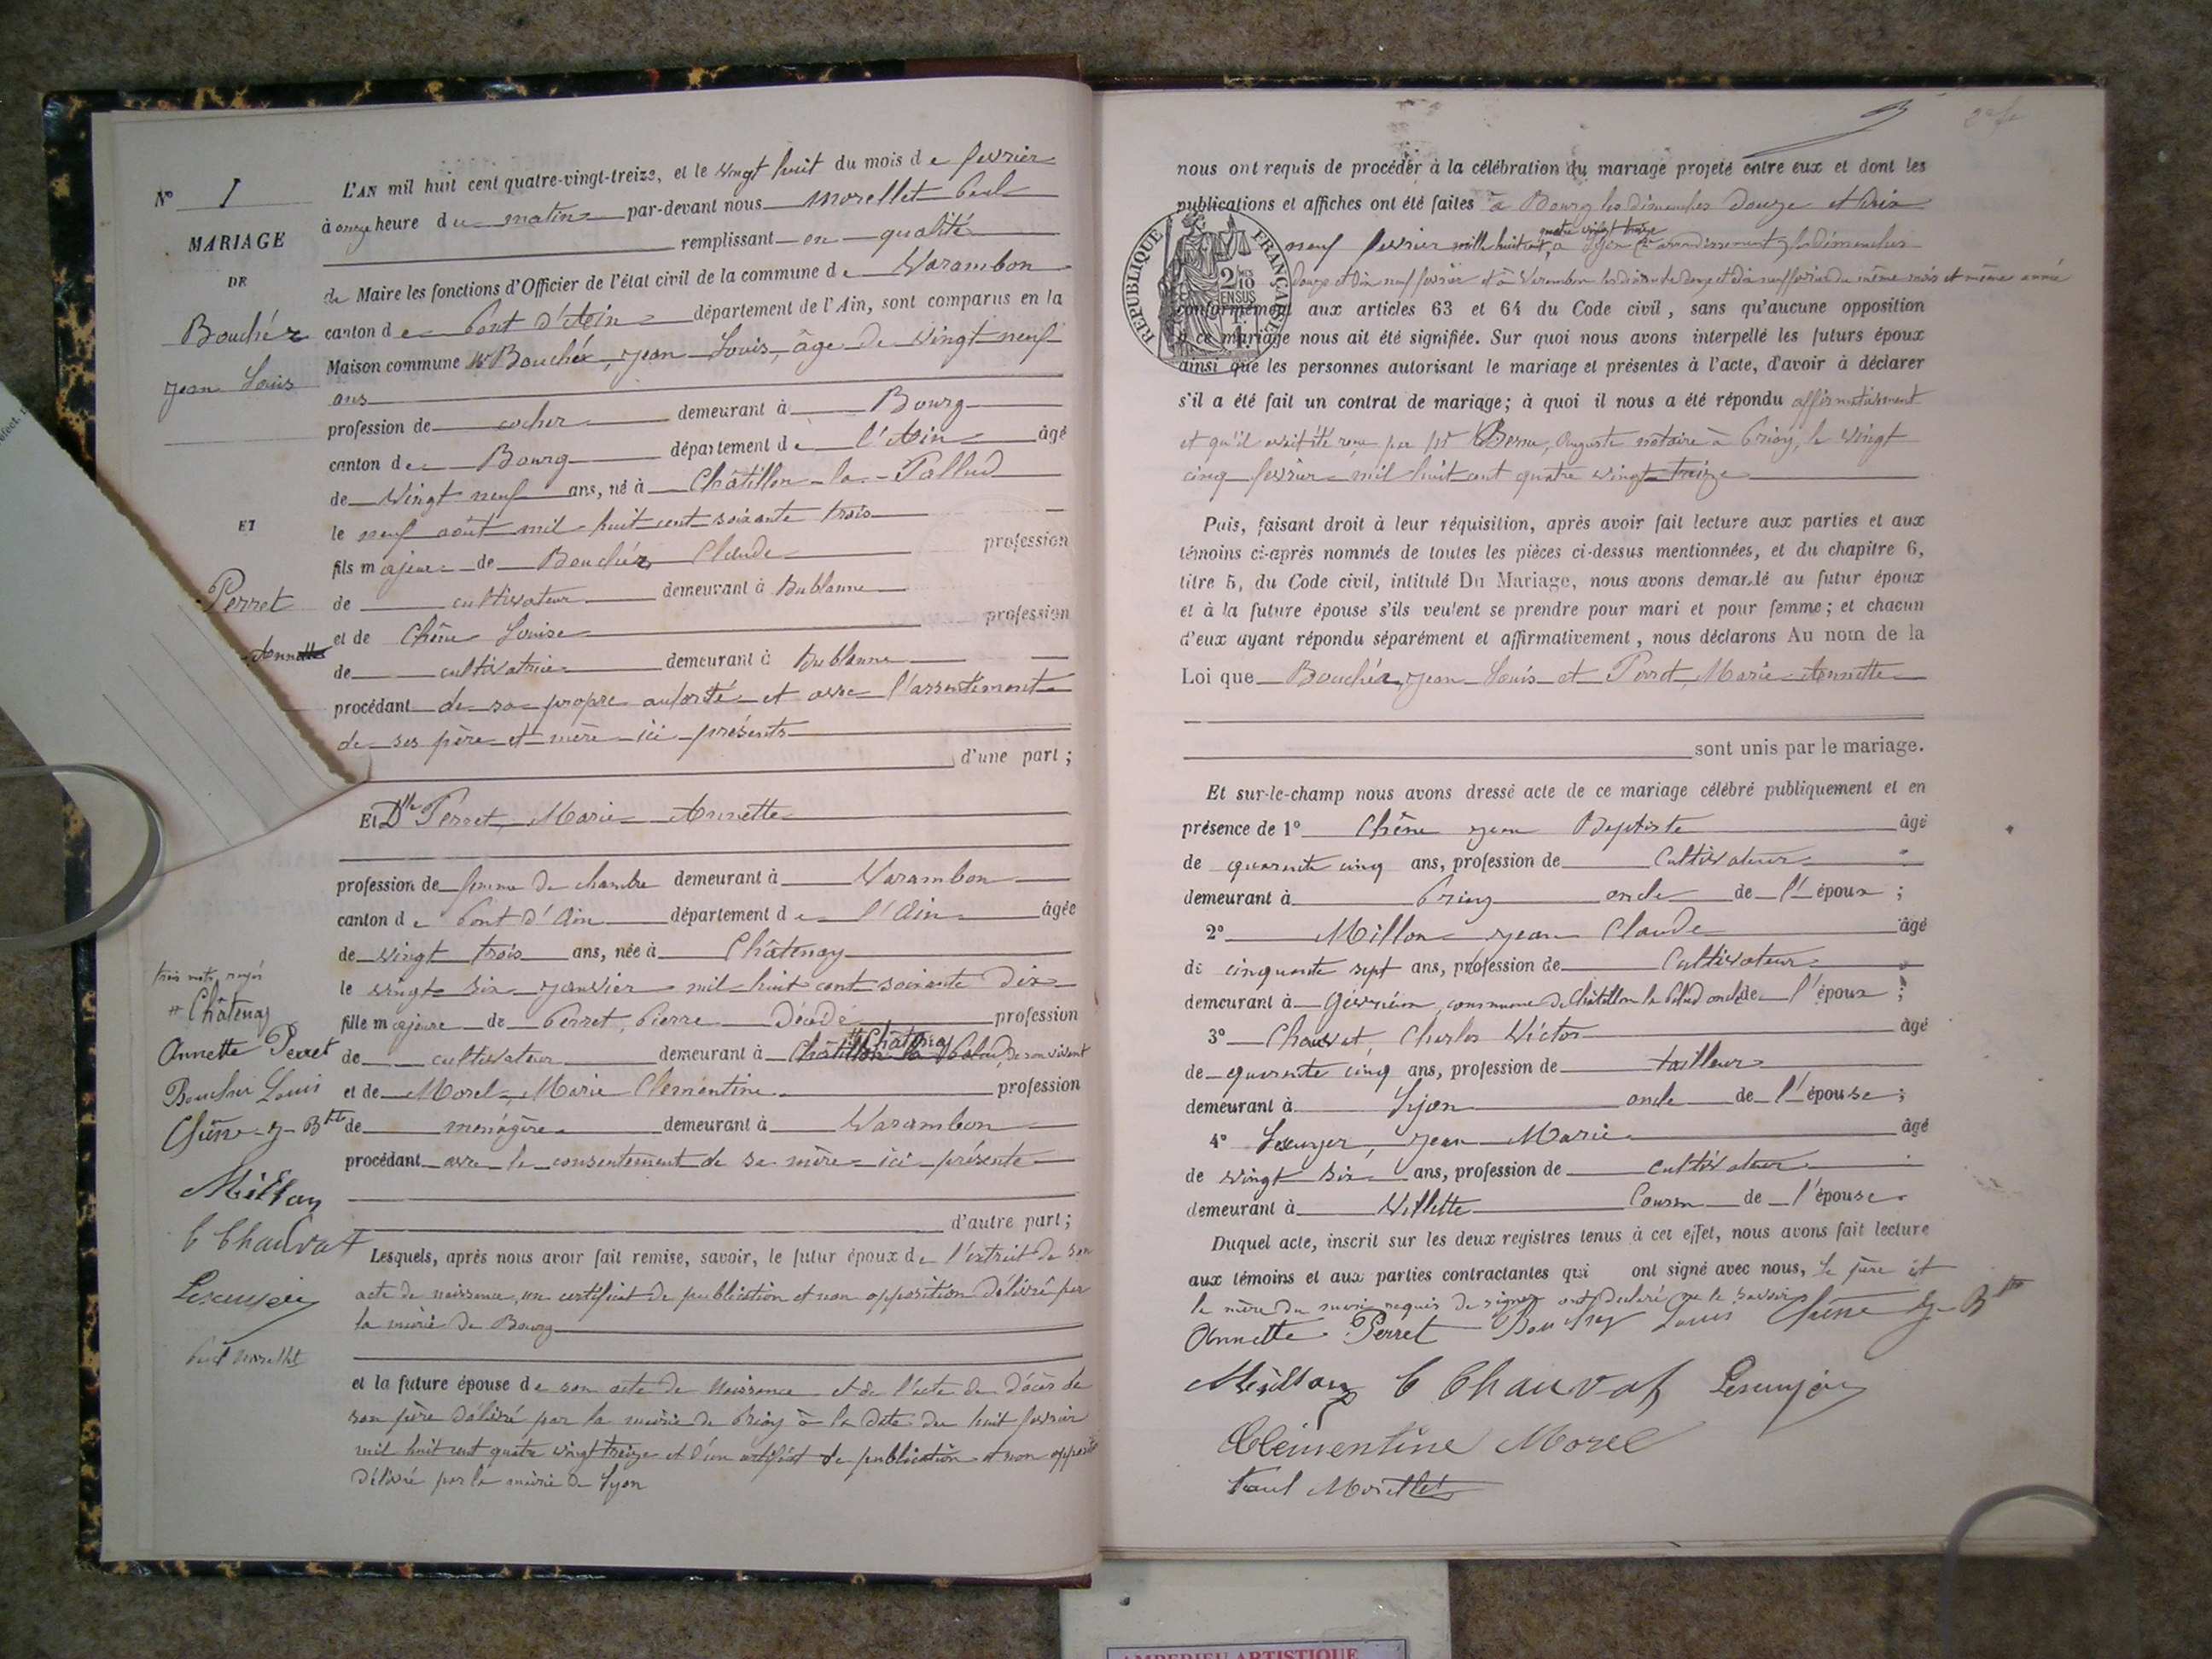 N° 1
MARIAGE
DE
Bouchéz
Jean Louis
ET
Perret
Annette
L'AN mil huit cent quatre-vingt-treize, et le vingt huit du mois de fevrier
à onze heure du matin par-devant nous Morellet Paul
remplissant en qualité
de Maire les fonctions d'Officier de l'état civil de la commune de Varambon
canton de Pont d'Ain département de l'Ain, sont comparus en la
Maison commune Mr Bouchéz, Jean Louis, âge de vingt neuf
ans
profession de cocher demeurant à Bourg
canton de Bourg département de l'Ain âgé
de vingt neuf ans, né à Châtillon-la-Pallud
le neuf août mil huit cent soixante trois
fils majeur de Bouchéz Claude profession
de cultivateur demeurant à Dublanne
et de Chêne Louise profession
de cultivatrice demeurant à Dublanne
procédant de sa propre autorité et avec l'assentiment
de ses père et mère ici présents
d'une part ;
Et Dlle Perret, Marie Annette
profession de femme de chambre demeurant à Varambon
canton de Pont d'Ain département de l'Ain âgée
de vingt trois ans, née à Châtenay
le vingt six janvier mil huit cent soixante dix
fille majeure de Perret, Pierre Décédé profession
# Châtenay
de cultivateur demeurant à Châtillon la Palud, de son vivant
et de Morel, Marie Clementine profession
de ménagère demeurant à Varambon
procédant avec le consentement de sa mère ici présente
d'autre part ;
Lesquels, après nous avoir fait remise, savoir, le futur époux de l'extrait de son
acte de naissance, un certificat de publication et non opposition délivré par
la mairie de Bourg
et la future épouse de son acte de Naissance et de l'acte de décès de
son père délivré par la mairie de Priay à la date du huit fevrier
mil huit cent quatre vingt treize et d'un certificat de publication et non opposit
délivré par la mairie de Lyon
trois mots rayés
# Châtenay
Annette Perret
Boucher Louis
Chêne J Bte
Millon
C Chauvat
Paul Morellet
nous ont requis de procéder à la célébration du mariage projeté entre eux et dont les
publications et affiches ont été faites à Bourg les dimanches Douze et Dix
quatre vingt treize
neuf fevrier mille huit cent, à Lyon arrondissement, les dimanches
douze et dix neuf fevrier et à Varambon les dimanche douze et dix neuf fevrier du même mois et même année
conformément aux articles 63 et 64 du Code civil, sans qu'aucune opposition
à ce mariage nous ait été signifiée. Sur quoi nous avons interpellé les futurs époux
ainsi que les personnes autorisant le mariage et présentes à l'acte, d'avoir à déclarer
s'il a été fait un contrat de mariage ; à quoi il nous a été répondu affirmativement
et qu'il avait été reçu par Mr Auguste notaire à Priay, le vingt
cinq fevrier mil huit cent quatre vingt treize
RÉPUBLIQUE FRANÇAISE
2/10 EN SUS
Puis, faisant droit à leur réquisition, après avoir fait lecture aux parties et aux
témoins ci-après nommés de toutes les pièces ci-dessus mentionnées, et du chapitre 6,
titre 5, du Code civil, intitulé Du Mariage, nous avons demandé au futur époux
et à la future épouse s'ils veulent se prendre pour mari et pour femme ; et chacun
d'eux ayant répondu séparément et affirmativement, nous déclarons Au nom de la
Loi que Bouchéz, Jean Louis et Perret, Marie Annette
sont unis par le mariage.
Et sur-le-champ nous avons dressé acte de ce mariage célébré publiquement et en
présence de 1° Chêne Jean Baptiste âgé
de quarante cinq ans, profession de Cultivateur
demeurant à Priay oncle de l'époux ;
2° Millon Jean Claude âgé
de cinquante sept ans, profession de Cultivateur
demeurant à Gévrieux, commune de Châtillon la Palud oncle de l'époux ;
3° Chauvat, Charles Victor âgé
de quarante cinq ans, profession de tailleur
demeurant à Lyon oncle de l'épouse ;
4° Jean Marie âgé
de vingt six ans, profession de cultivateur
demeurant à Villette Cousin de l'épouse.
Duquel acte, inscrit sur les deux registres tenus à cet effet, nous avons fait lecture
aux témoins et aux parties contractantes qui ont signé avec nous, le père et
la mère du marié requis de signer ont déclaré ne le savoir
Annette Perret Boucher Louis Chêne J Bte
Millon C Chauvat
Clémentine Morel
Paul Morellet
AMBERIEU ARTISTIQUE